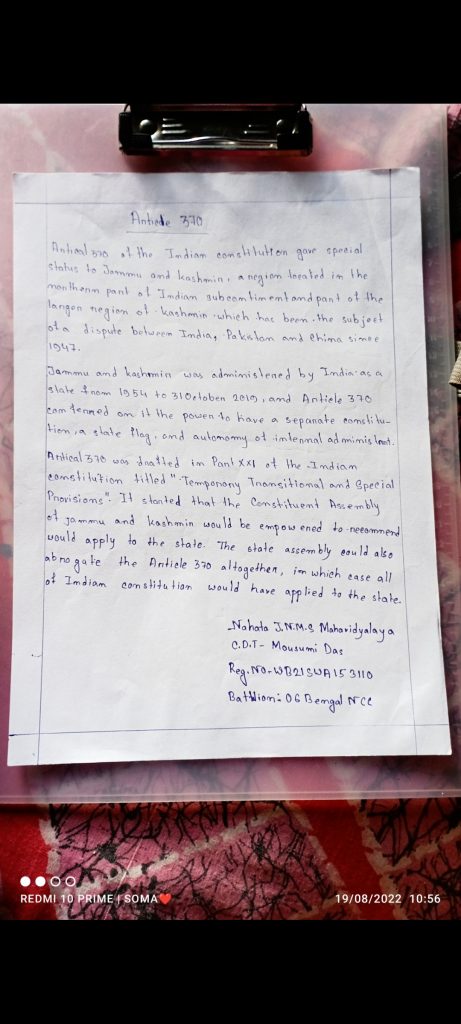 Article 370
Artical 370 of the Indian constitution gave special
status to Jammu and kashmir, a region located in the
northern part of Indian subcontinent and part of the
larger region of kashmir which has been the subject
of a dispute between India, Pakistan and China since
1947.
Jammu and kashmir was administered by India as a
state from 1954 to 31 October 2019, and Article 370
conferred on it the power to have a separate constitu-
tion, a state flag, and autonomy of internal administrat.
Artical 370 was drafted in Part XXI of the Indian
constitution titled "Temporary Transitional and Special
Provisions". It started that the Constituent Assembly
of jammu and kashmir would be empowered to recommend
would apply to the state. The state assembly could also
abrogate the Article 370 altogether, in which case all
of Indian constitution would have applied to the state.
Nahata J.N.M.S Mahavidyalaya
C.D.T- Mousumi Das
Reg. NO-WB21SWA153110
Battlion: 06 Bengal NCC
REDMI 10 PRIME | SOMA❤️
19/08/2022 10:56